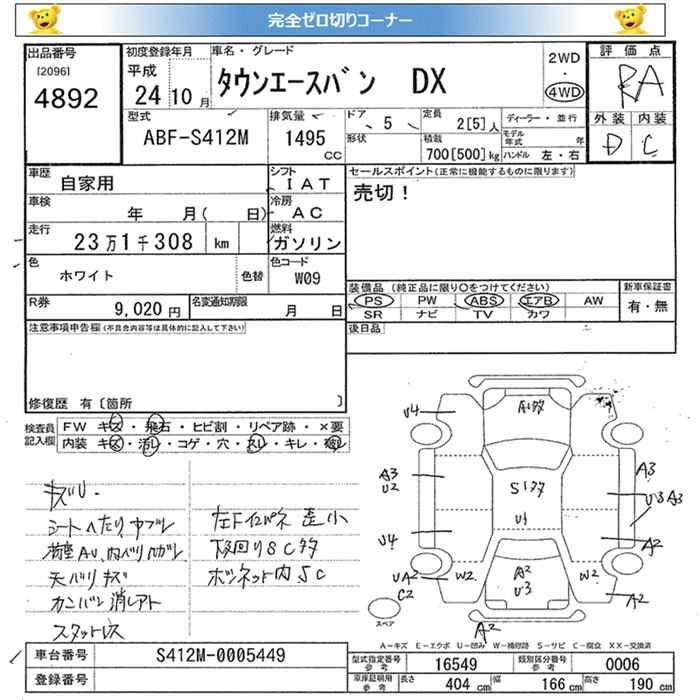 完全ゼロ切りコーナー
出品番号
[2096]
4892
初度登録年月
平成
24 10 月
車名・グレード
タウンエースバン DX
2WD
・
4WD
評価点
RA
外装 内装
D C
型式
ABF-S412M
排気量
1495
CC
ドア
5
形状
定員
2[5] 人
積載
700[500] kg
ディーラー・並行
モデル年式 年
ハンドル 左・右
車歴
自家用
シフト
IAT
セールスポイント(正常に機能するものに限ります)
売切!
車検
年 月( 日)
冷房
AC
走行
23万1千308 km
燃料
ガソリン
色
ホワイト
色替
色コード
W09
装備品 (純正品に限り○をつけてください)
PS PW ABS エアB AW
SR ナビ TV カワ
新車保証書
有・無
R券
9,020 円
名変通知期限
月 日
後日品
注意事項申告欄(不具合内容等は具体的に記入して下さい)
修復歴 有〔箇所 〕
検査員
記入欄
FW キズ・飛石・ヒビ割・リペア跡・×要
内装 キズ・汚レ・コゲ・穴・スレ・キレ・
キズU・
シートヘたり、
天バリキズ
カンバン消しアト
スタットレス
下回りSC多
ボンネット内SC
A1多
U4
A3
U2
S1多
U1
A3
U3 A3
U4
A2
UA2
C2
W2
A2
U3
W2
A2
A2
スペア
A-キズ E-エクボ U-凹み W-補修跡 S-サビ C-腐食 XX-交換済
車台番号
S412M-0005449
登録番号
型式指定番号
参考
16549
類別区分番号
参考
0006
車庫証明用
参考
長さ 404 cm
幅 166 cm
高さ 190 cm